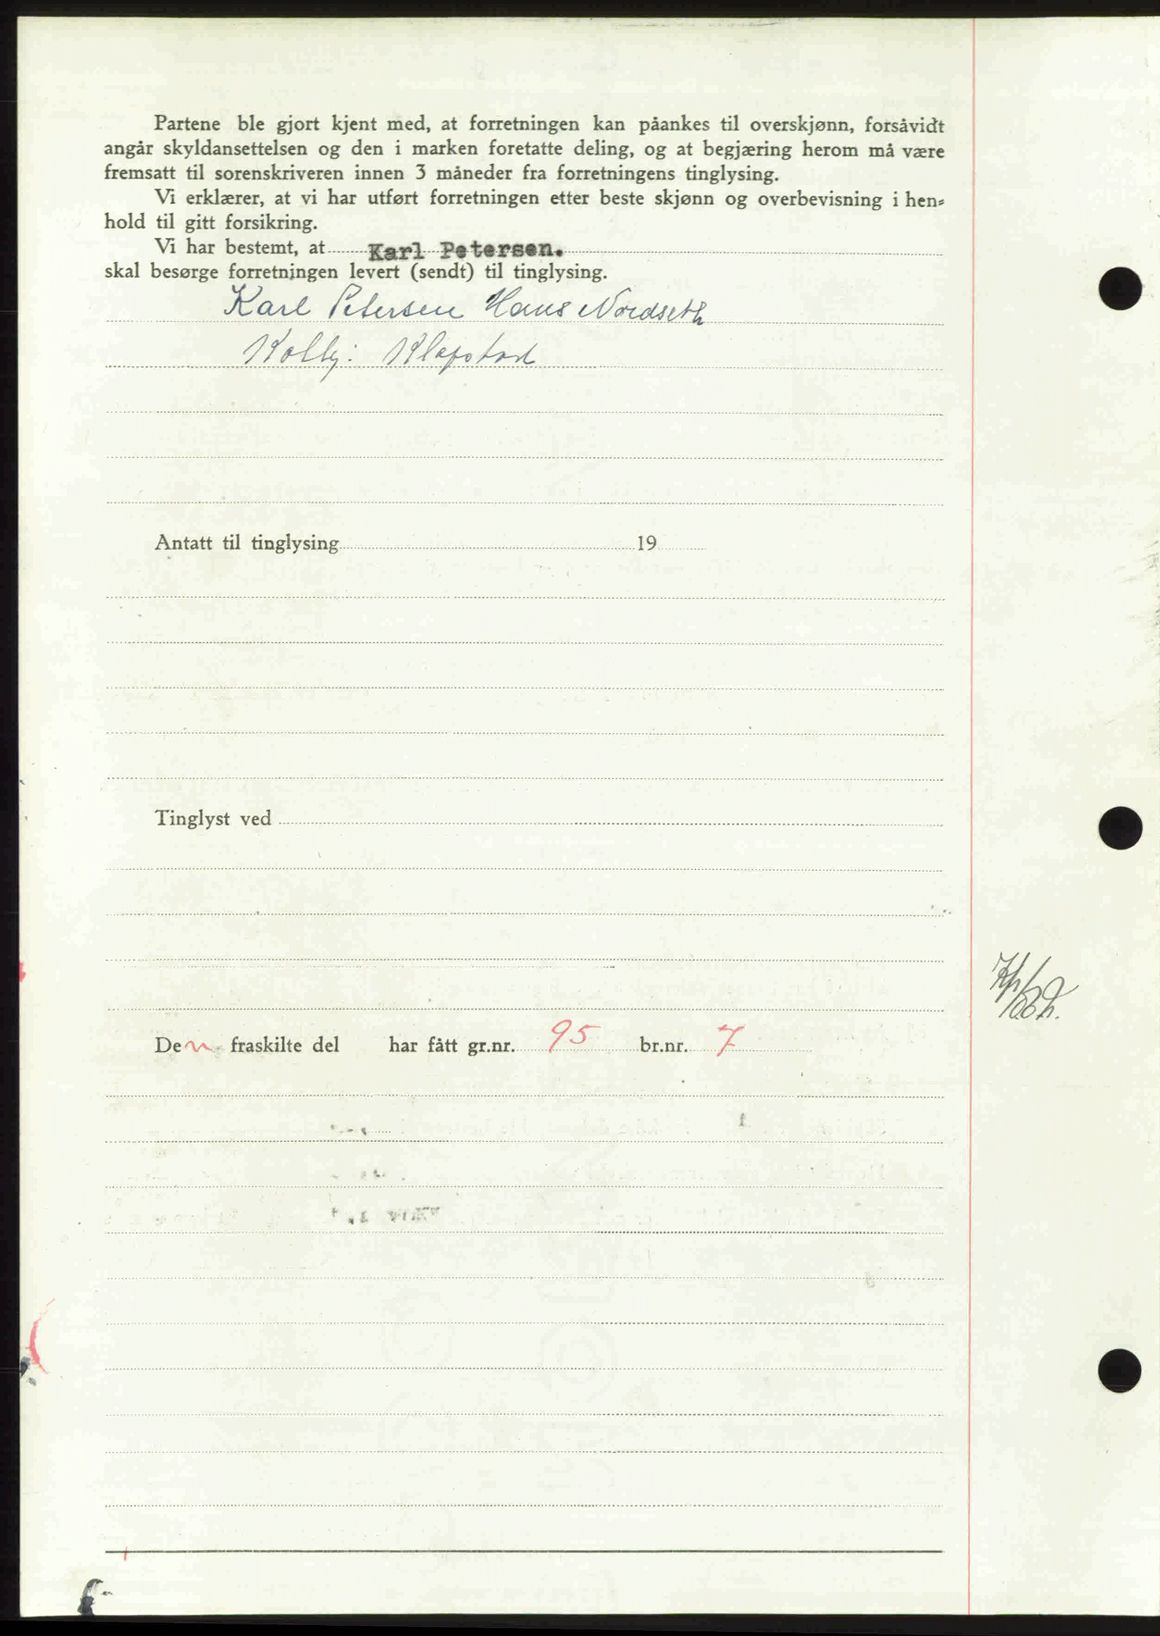 Partene ble gjort kjent med, at forretningen kan påankes til overskjønn, forsåvidt
angår skyldansettelsen og den i marken foretatte deling, og at begjæring herom må være
fremsatt til sorenskriveren innen 3 måneder fra forretningens tinglysing.
Vi erklærer, at vi har utført forretningen etter beste skjønn og overbevisning i hen-
hold til gitt forsikring.
Vi har bestemt, at Karl Petersen.
skal besørge forretningen levert (sendt) til tinglysing.
Karl Petersen Hans Nordseth
Kolbj: Klapstad
Antatt til tinglysing 19
Tinglyst ved
Den fraskilte del har fått gr.nr. 95 br.nr. 7